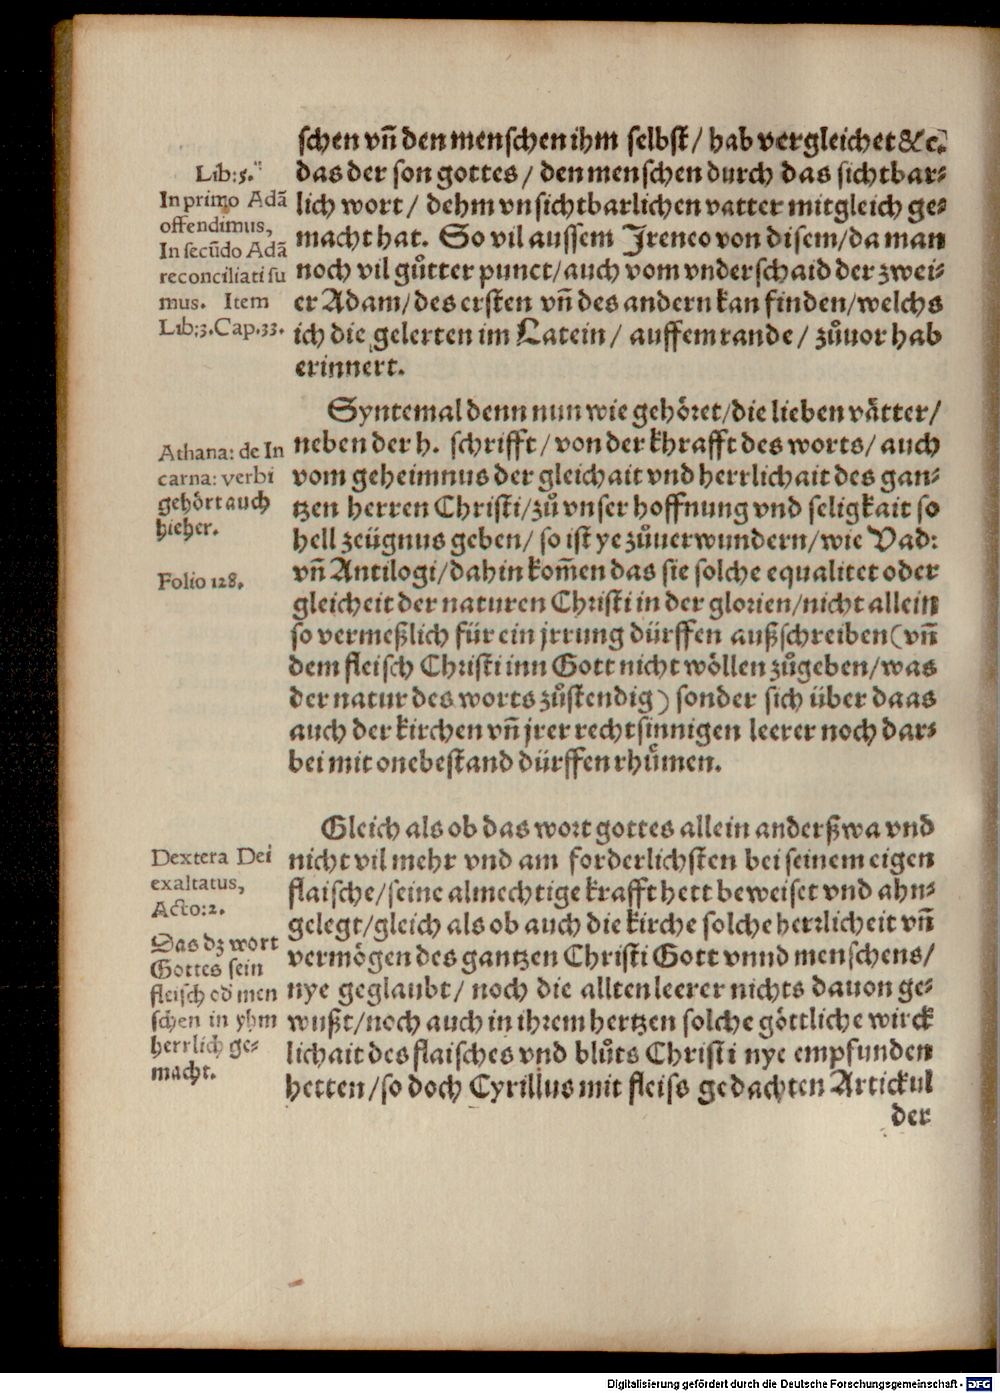 schen vn̄ den menschen ihm selbst/ hab vergleichet &c.
das der son gottes / den menschen durch das sichtbar-
lich wort / dehm vnsichtbarlichen vatter mitgleich ge-
macht hat. So vil aussem Ireneo von disem/da man
noch vil gůtter punct/auch vom vnderschaid der zwei-
er Adam/des ersten vn̄ des andern kan finden/welchs
ich die gelerten im Latein / auffem rande / zůuor hab
erinnert.
Lib:5.
In primo Adā
offendimus,
In secūdo Adā
reconciliati su
mus. Item
Lib:3.Cap.33.
Syntemal denn nun wie gehöret/die lieben vätter/
neben der h. schrifft/ von der khrafft des worts/ auch
vom geheimnus der gleichait vnd herrlichait des gan-
tzen herren Christi/zů vnser hoffnung vnd seligkait so
hell zeügnus geben/ so ist ye zůuerwundern/wie Vad:
vn̄ Antilogi/dahin kom̄en das sie solche equalitet oder
gleicheit der naturen Christi in der glorien/nicht allein
so vermeßlich für ein jrrung dürffen außschreiben(vn̄
dem fleisch Christi inn Gott nicht wöllen zůgeben/was
der natur des worts zůstendig) sonder sich über daas
auch der kirchen vn̄ jrer rechtsinnigen leerer noch dar-
bei mit onebestand dürffen rhůmen.
Athana: de In
carna: verbi
gehört auch
hieher.
Folio 128.
Gleich als ob das wort gottes allein anderßwa vnd
nicht vil mehr vnd am forderlichsten bei seinem eigen
flaische/seine almechtige krafft hett beweiset vnd ahn-
gelegt/gleich als ob auch die kirche solche herrlicheit vn̄
vermögen des gantzen Christi Gott vnnd menschens/
nye geglaubt/ noch die allten leerer nichts dauon ge-
wußt/noch auch in ihrem hertzen solche göttliche wirck
lichait des flaisches vnd blůts Christi nye empfunden
hetten/so doch Cyrillus mit fleiss gedachten Artickul
der
Dextera Dei
exaltatus,
Acto:2.
Das dz wort
Gottes sein
fleisch od men
schen in yhm
herrlich ge-
macht.
Digitalisierung gefördert durch die Deutsche Forschungsgemeinschaft - DFG